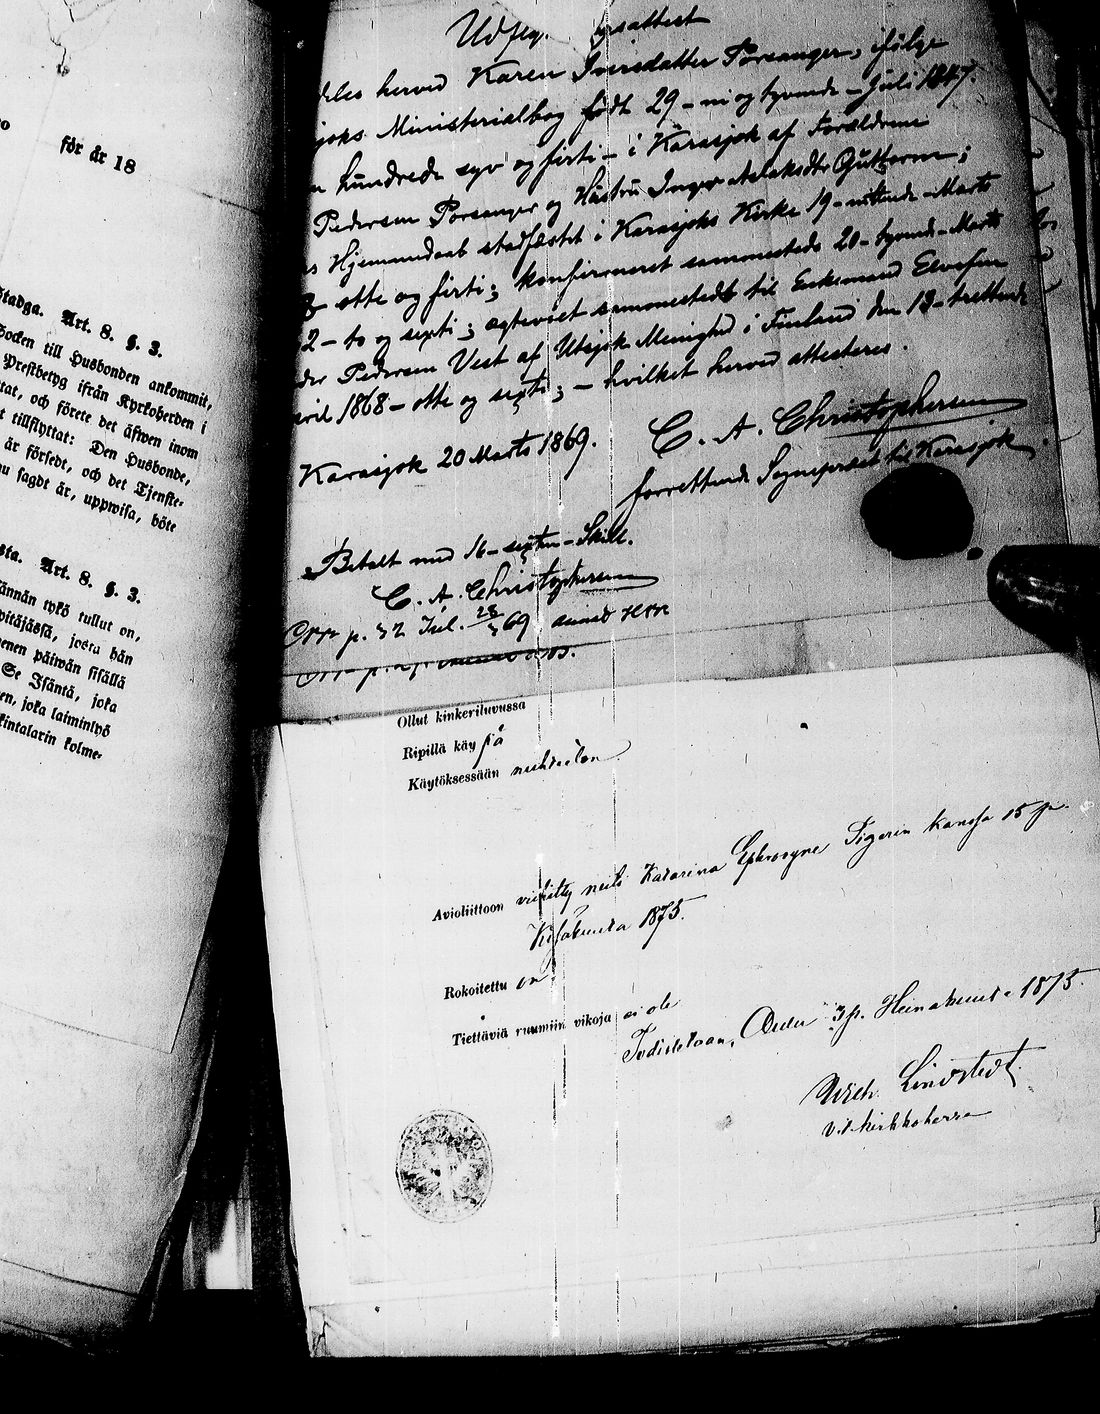 för år 18
Stadga. Art. 8. §. 3.
Socken till Husbonden ankommit,
Prestbetyg ifrån Kyrkoherden i
och förete det äfwen inom
tillflyttat: Den Husbonde,
är försedt, och det Tjenste-
sagdt är, uppwisa, böte
Art. 8. §. 3.
tykö tullut on,
josta hän
päiwän sisällä
Se Isäntä, joka
joka laiminlyö
kolme-
herved Karen Iversdatter Porsanger, ifølge
Ministerialbog født 29 - ni og tyvende - Juli 1847.
hundrede syv og firti - i Karasjok af Forældrene
Pedersen Porsanger og Hustru Inger Aslaksdtr Guttorm;
Hjemmedaab stadfæstet i Karasjoks Kirke 19 - nittende - Marts
otte og firti; konfirmeret sammesteds 20 - tyvende - Marts
2 - to og sexti; ægteviet sammesteds til Enkemand
Pedersen Vest af Utsjok Menighed i Finland den 13 - trettende
1868 - otte og sexti; - hvilket herved attesteres.
Karasjok 20 Marts 1869.
C. A. Christophersen
forrettende Sognepræst til Karasjok
Betalt med 16 - sexten - Skill.
C. A. Christophersen
Ollut kinkeriluvussa
Ripillä käypä
Käytöksessään nuhteeton
Avioliittoon vihitty neits Katarina Ephrosyne Tigerin kanssa 15 p.
Kesäkuuta 1875.
Rokoitettu on
Tiettäviä ruumiin vikoja ei ole
Todistetaan, Oulu 3 p. Heinäkuuta 1875.
Wilh. Lindstedt
v.t. kirkkoherra